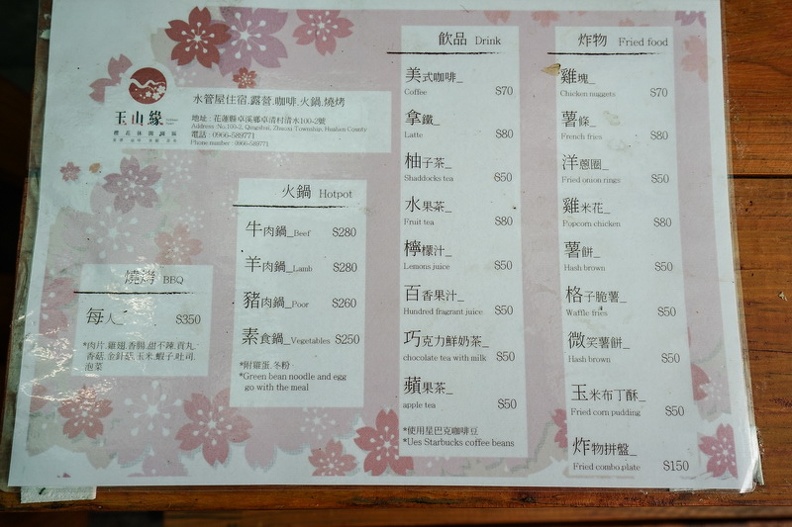 玉山緣
水管屋住宿.露營.咖啡.火鍋.燒烤
地址：花蓮縣卓溪鄉卓清村清水100-2號
Address :No.100-2, Qingshui, Zhuoxi Township, Hualien County
電話：0906-589771
Phone number : 0906-589771
燒烤 BBQ
每人_ $350
*肉片.雞翅.香腸.甜不辣.貢丸.
香菇.金針菇.玉米.蝦子.吐司.
泡菜
火鍋 Hotpot
牛肉鍋_Beef $280
羊肉鍋_Lamb $280
豬肉鍋_Poor $260
素食鍋_Vegetables $250
*附雞蛋.冬粉
*Green bean noodle and egg
go with the meal
飲品 Drink
美式咖啡_
Coffee $70
拿鐵_
Latte $80
柚子茶_
Shaddocks tea $50
水果茶_
Fruit tea $80
檸檬汁_
Lemons juice $50
百香果汁_
Hundred fragrant juice $50
巧克力鮮奶茶_
chocolate tea with milk $50
蘋果茶_
apple tea $50
*使用星巴克咖啡豆
*Ues Starbucks coffee beans
炸物 Fried food
雞塊_
Chicken nuggets $70
薯條_
French fries $80
洋蔥圈_
Fried onion rings $50
雞米花_
Popcorn chicken $80
薯餅_
Hash brown $50
格子脆薯_
Waffle fries $50
微笑薯餅_
Hash brown $50
玉米布丁酥_
Fried corn pudding $50
炸物拼盤_
Fried combo plate $150